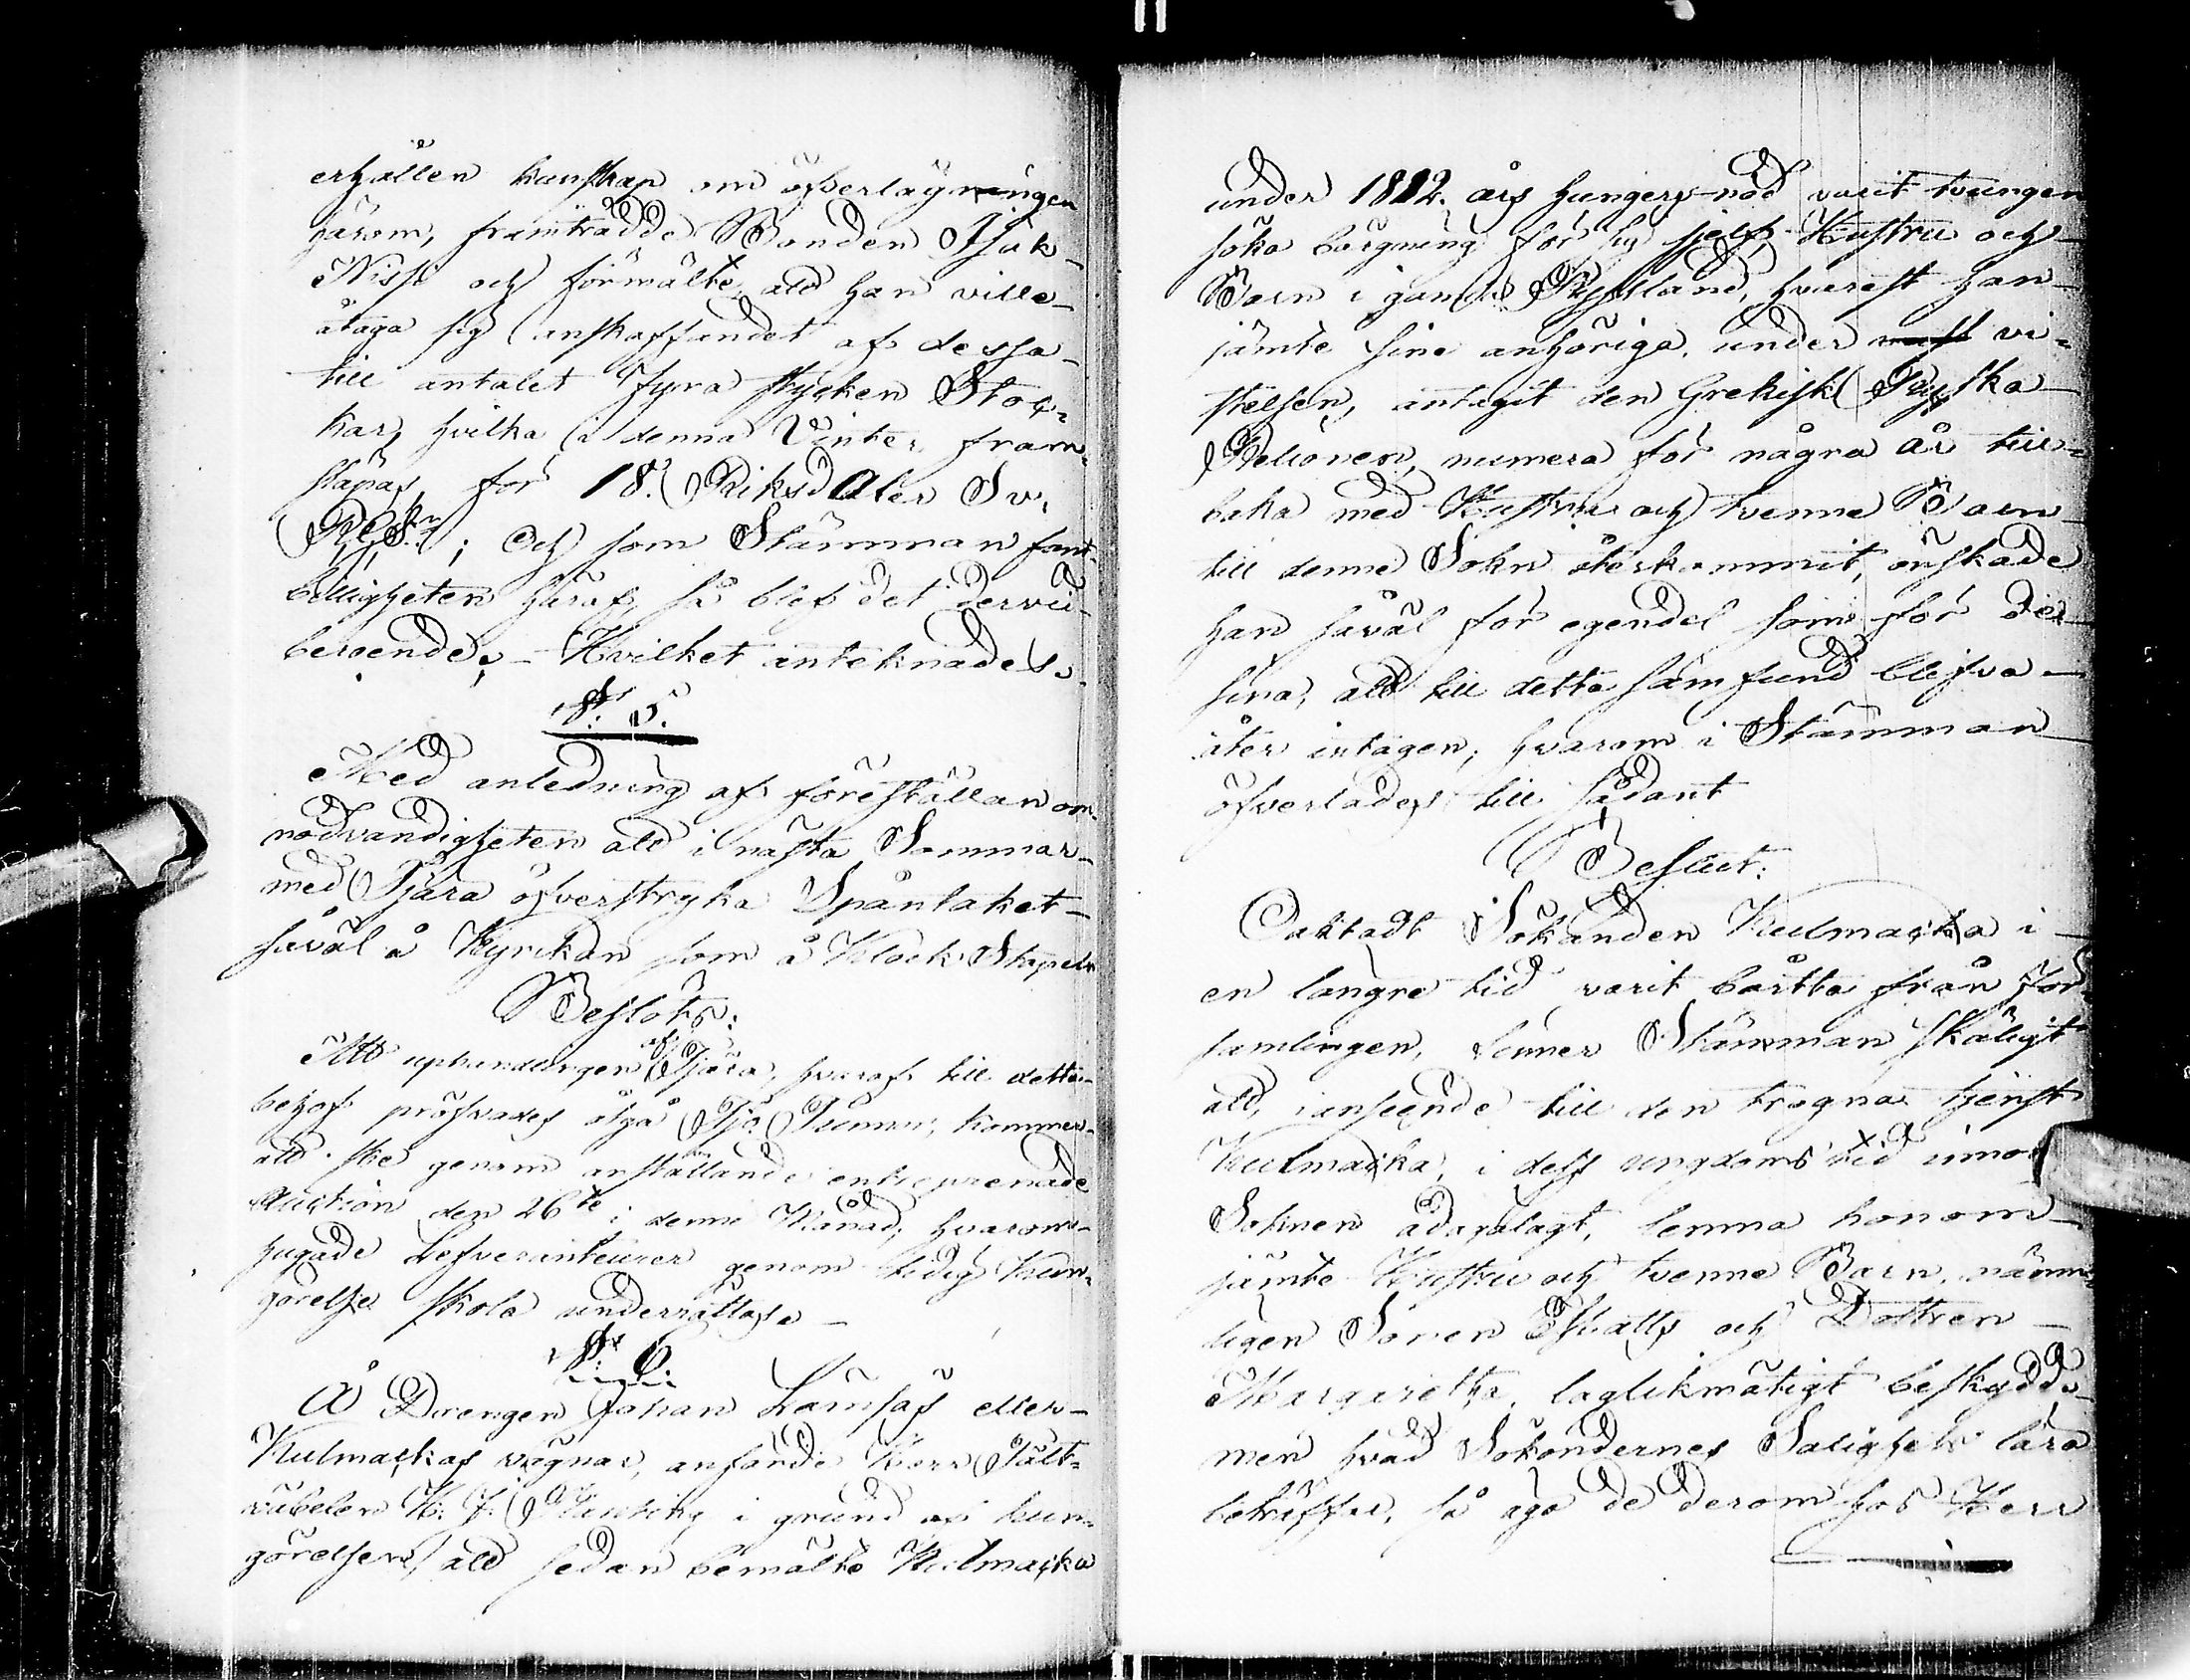 erhållen kunskap om öfverlägningen
härom, framträdde Bonden Isak
Nissi och förmälte att han ville
åtaga sig anskaffandet af dessa
till antalet fyra stycken Stoc-
kar, hvilka i denna Vinter fram-
släpas, för 18. Riksdaler Sv.
R.G.S.; Och som Stämman fant
billigheten häraf, så blef det dervid
beroende; - Hvilket anteknades.
§. 5.
Med anledning af föreställan om
nödvändigheten att i nästa Sommar
med Tjära öfverstryka Spåntaket
såväl å Kyrkan som å Klock Stapeln
Beslöts:
Att uphandlingen af Tjära, hvaraf till detta
behof pröfvades åtgå Tju Tunnor, kommer
att ske genom anställande entreprenade
Auction den 26te i denne Månad, hvarom
hugade Lefveranteurer genom tidig kun-
görelse skola underrättas -
§. 6.
Å Drengen Johan Lamsas eller
Kulmaskas vägnar, anförde Herr Fält-
väbelen H. J. i grund af kun-
görelsen, att sedan bemälte Kulmaska
under 1812. års hungers-nöd varit tvungen
söka bärgning för sig sjelf, Hustru och
Barn i gamla Ryssland, hvarest han
jämte sine anhöriga, under vi-
stelsen, antagit den Grekisk Ryska
Relionen, numera för några år till-
baka med Hustru och tvenne Barn
till denne Sokn återkommit, önskade
han såväl för egendel som för de
sina, att till detta samfund blifva
åter intagen; hvarom i Stämman
öfverlades till sådant
Beslut:
Oaktadt Sökanden Kulmaska i
en längre tid varit bårtta från För-
samlingen, finner Stämman skäligt
att, i anseende till den trogna tjenst
Kulmaska, i dess ungdoms tid imot
Soknen ådagalagt, lemna honom
jämte Hustru och tvenne Barn, nämn-
ligen Sonen och Dottren
Margaretha, laglikmätigt beskydd
men hvad Sökandernes Salighets lära
beträffar, så äga de derom hos Herr